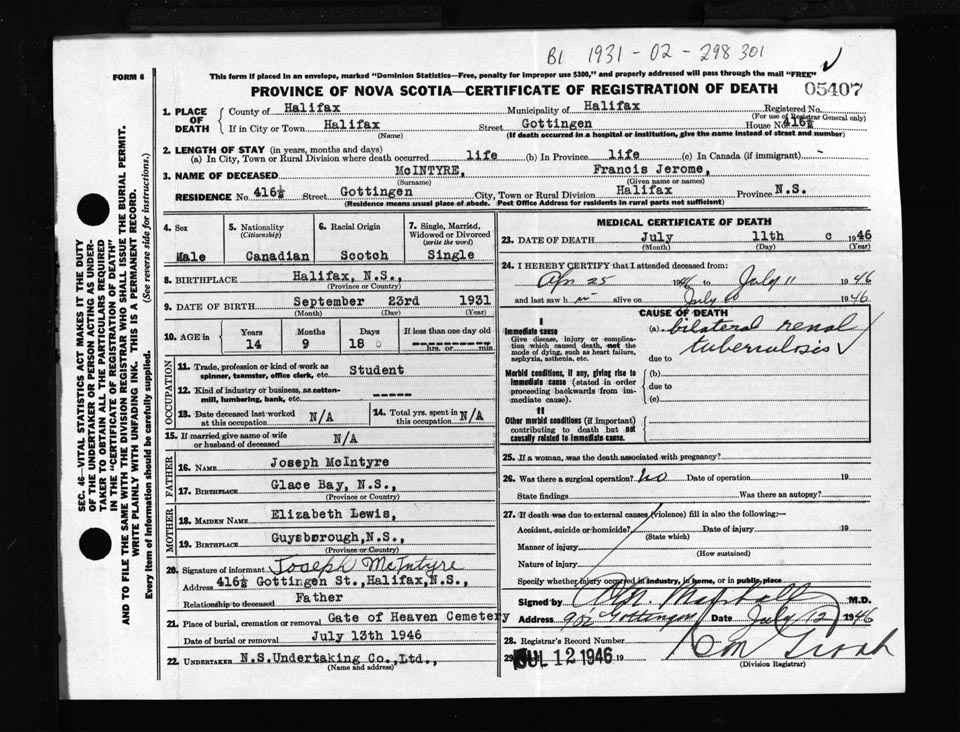 B1 1931-02-298301
FORM 6
This form if placed in an envelope, marked "Dominion Statistics—Free, penalty for improper use $300," and properly addressed will pass through the mail "FREE"
PROVINCE OF NOVA SCOTIA—CERTIFICATE OF REGISTRATION OF DEATH
05407
SEC. 46—VITAL STATISTICS ACT MAKES IT THE DUTY
OF THE UNDERTAKER OR PERSON ACTING AS UNDER-
TAKER TO OBTAIN ALL THE PARTICULARS REQUIRED
IN THE "CERTIFICATE OF REGISTRATION OF DEATH"
AND TO FILE THE SAME WITH THE DIVISION REGISTRAR WHO SHALL ISSUE THE BURIAL PERMIT.
WRITE PLAINLY WITH UNFADING INK. THIS IS A PERMANENT RECORD.
Every item of information should be carefully supplied. (See reverse side for instructions.)
1. PLACE OF DEATH County of Halifax Municipality of Halifax Registered No.
(For use of Registrar General only)
If in City or Town Halifax Street Gottingen House No. 416½
(Name) (If death occurred in a hospital or institution, give the name instead of street and number)
2. LENGTH OF STAY (in years, months and days)
(a) In City, Town or Rural Division where death occurred life (b) In Province life (c) In Canada (if immigrant) -
3. NAME OF DECEASED McINTYRE, Francis Jerome,
(Surname) (Given name or names)
RESIDENCE No. 416½ Street Gottingen City, Town or Rural Division Halifax Province N.S.
(Residence means usual place of abode. Post Office Address for residents in rural parts not sufficient)
4. Sex Male
5. Nationality (Citizenship) Canadian
6. Racial Origin Scotch
7. Single, Married, Widowed or Divorced (write the word) Single
8. BIRTHPLACE Halifax, N.S.,
(Province or Country)
9. DATE OF BIRTH September 23rd 1931
(Month) (Day) (Year)
10. AGE in Years Months Days If less than one day old
14 9 18 hrs. or min.
OCCUPATION
11. Trade, profession or kind of work as spinner, teamster, office clerk, etc. Student
12. Kind of industry or business, as cotton-mill, lumbering, bank, etc. -----
13. Date deceased last worked at this occupation N/A
14. Total yrs. spent in this occupation N/A
15. If married give name of wife or husband of deceased N/A
FATHER
16. NAME Joseph McIntyre
17. BIRTHPLACE Glace Bay, N.S.,
(Province or Country)
MOTHER
18. MAIDEN NAME Elizabeth Lewis,
19. BIRTHPLACE Guysborough,N.S.,
(Province or Country)
20. Signature of informant Joseph McIntyre
Address 416½ Gottingen St.,Halifax,N.S.,
Relationship to deceased Father
21. Place of burial, cremation or removal Gate of Heaven Cemetery
Date of burial or removal July 13th 1946
22. UNDERTAKER N.S.Undertaking Co.,Ltd.,
(Name and address)
MEDICAL CERTIFICATE OF DEATH
23. DATE OF DEATH July 11th c 1946
(Month) (Day) (Year)
24. I HEREBY CERTIFY that I attended deceased from:
Apr 25 1946 to July 11 1946
and last saw h m alive on July 1946
CAUSE OF DEATH
I
Immediate cause
Give disease, injury or complication which caused death, not the mode of dying, such as heart failure, asphyxia, asthenia, etc.
(a) bilateral renal
tuberculosis
due to
Morbid conditions, if any, giving rise to immediate cause (stated in order proceeding backwards from immediate cause).
(b)
due to
(c)
II
Other morbid conditions (if important) contributing to death but not causally related to immediate cause.
25. If a woman, was the death associated with pregnancy?
26. Was there a surgical operation? no Date of operation 19
State findings Was there an autopsy?
27. If death was due to external causes (violence) fill in also the following:—
Accident, suicide or homicide? Date of injury 19
(State which)
Manner of injury
(How sustained)
Nature of injury
Specify whether injury occurred in industry, in home, or in public place
Signed by Marshall M.D.
Address Gottingen Date July 12 1946
28. Registrar's Record Number
29. JUL 12 1946 19
(Division Registrar)